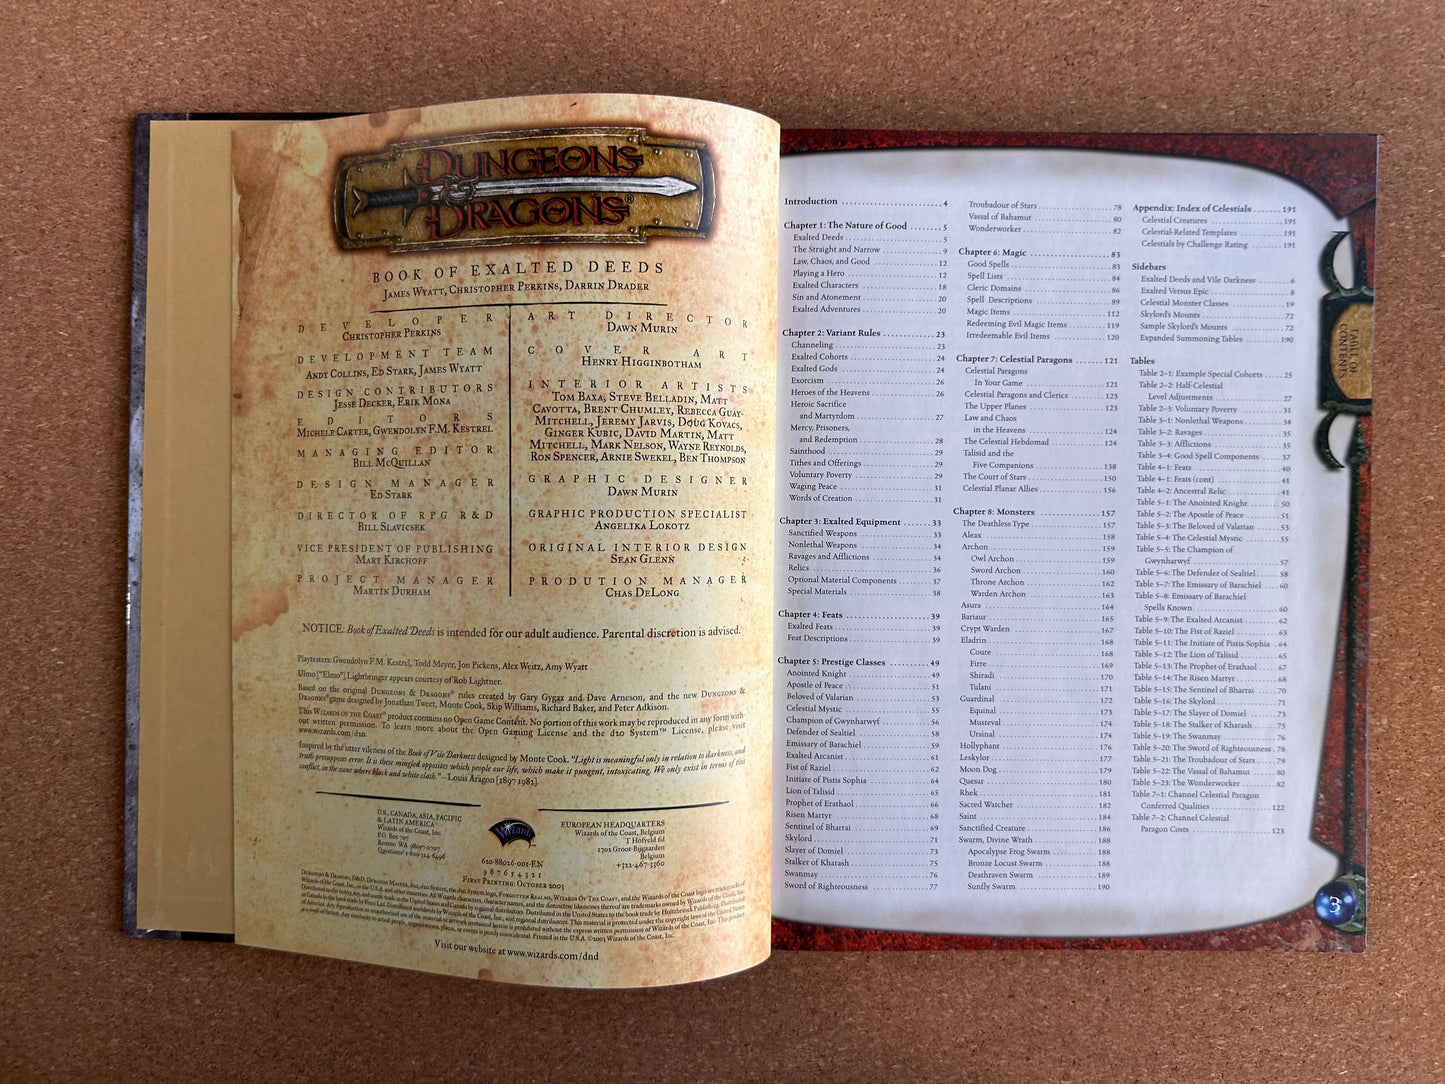 DUNGEONS
&
DRAGONS®
BOOK OF EXALTED DEEDS
JAMES WYATT, CHRISTOPHER PERKINS, DARRIN DRADER
DEVELOPER
CHRISTOPHER PERKINS
DEVELOPMENT TEAM
ANDY COLLINS, ED STARK, JAMES WYATT
DESIGN CONTRIBUTORS
JESSE DECKER, ERIK MONA
EDITORS
MICHELE CARTER, GWENDOLYN F.M. KESTREL
MANAGING EDITOR
BILL MCQUILLAN
DESIGN MANAGER
ED STARK
DIRECTOR OF RPG R&D
BILL SLAVICSEK
VICE PRESIDENT OF PUBLISHING
MARY KIRCHOFF
PROJECT MANAGER
MARTIN DURHAM
ART DIRECTOR
DAWN MURIN
COVER ART
HENRY HIGGINBOTHAM
INTERIOR ARTISTS
TOM BAXA, STEVE BELLADIN, MATT
CAVOTTA, BRENT CHUMLEY, REBECCA GUAY-
MITCHELL, JEREMY JARVIS, DOUG KOVACS,
GINGER KUBIC, DAVID MARTIN, MATT
MITCHELL, MARK NELSON, WAYNE REYNOLDS,
RON SPENCER, ARNIE SWEKEL, BEN THOMPSON
GRAPHIC DESIGNER
DAWN MURIN
GRAPHIC PRODUCTION SPECIALIST
ANGELIKA LOKOTZ
ORIGINAL INTERIOR DESIGN
SEAN GLENN
PRODUTION MANAGER
CHAS DELONG
NOTICE: Book of Exalted Deeds is intended for our adult audience. Parental discretion is advised.
Playtesters: Gwendolyn F.M. Kestrel, Todd Meyer, Jon Pickens, Alex Weitz, Amy Wyatt
Ulmo ["Elmo"] Lightbringer appears courtesy of Rob Lightner.
Based on the original DUNGEONS & DRAGONS® rules created by Gary Gygax and Dave Arneson, and the new DUNGEONS &
DRAGONS® game designed by Jonathan Tweet, Monte Cook, Skip Williams, Richard Baker, and Peter Adkison.
This WIZARDS OF THE COAST® product contains no Open Game Content. No portion of this work may be reproduced in any form with-
out written permission. To learn more about the Open Gaming License and the d20 System™ License, please visit
www.wizards.com/d20.
Inspired by the utter vileness of the Book of Vile Darkness designed by Monte Cook. "Light is meaningful only in relation to darkness, and
truth presupposes error. It is these mingled opposites which people our life, which make it pungent, intoxicating. We only exist in terms of this
conflict, in the zone where black and white clash."—Louis Aragon [1897-1982].
U.S., CANADA, ASIA, PACIFIC
& LATIN AMERICA
Wizards of the Coast, Inc.
P.O. Box 707
Renton WA 98057-0707
Questions? 1-800-324-6496
Wizards
610-88026-001-EN
9 8 7 6 5 4 3 2 1
FIRST PRINTING: OCTOBER 2003
EUROPEAN HEADQUARTERS
Wizards of the Coast, Belgium
T Hofveld 6d
1702 Groot-Bijgaarden
Belgium
+322-467-3360
DUNGEONS & DRAGONS, D&D, DUNGEON MASTER, d20, d20 System, the d20 System logo, FORGOTTEN REALMS, WIZARDS OF THE COAST, and the Wizards of the Coast logo are trademarks of
Wizards of the Coast, Inc., in the U.S.A. and other countries. All Wizards characters, character names, and the distinctive likenesses thereof are trademarks owned by Wizards of the Coast, Inc.
Distributed to the hobby, toy, and comic trade in the United States and Canada by regional distributors. Distributed in the United States to the book trade by Holtzbrinck Publishing. Distributed
in Canada to the book trade by Fenn Ltd. Distributed worldwide by Wizards of the Coast, Inc., and regional distributors. This material is protected under the copyright laws of the United States
of America. Any reproduction or unauthorized use of the material or artwork contained herein is prohibited without the express written permission of Wizards of the Coast, Inc. This product
is a work of fiction. Any similarity to actual people, organizations, places, or events is purely coincidental. Printed in the U.S.A. ©2003 Wizards of the Coast, Inc.
Visit our website at www.wizards.com/dnd
Introduction 4
Chapter 1: The Nature of Good 5
Exalted Deeds 5
The Straight and Narrow 9
Law, Chaos, and Good 12
Playing a Hero 12
Exalted Characters 18
Sin and Atonement 20
Exalted Adventures 20
Chapter 2: Variant Rules 23
Channeling 23
Exalted Cohorts 24
Exalted Gods 24
Exorcism 26
Heroes of the Heavens 26
Heroic Sacrifice
and Martyrdom 27
Mercy, Prisoners,
and Redemption 28
Sainthood 29
Tithes and Offerings 29
Voluntary Poverty 29
Waging Peace 31
Words of Creation 31
Chapter 3: Exalted Equipment 33
Sanctified Weapons 33
Nonlethal Weapons 34
Ravages and Afflictions 34
Relics 36
Optional Material Components 37
Special Materials 38
Chapter 4: Feats 39
Exalted Feats 39
Feat Descriptions 39
Chapter 5: Prestige Classes 49
Anointed Knight 49
Apostle of Peace 51
Beloved of Valarian 53
Celestial Mystic 55
Champion of Gwynharwyf 56
Defender of Sealtiel 58
Emissary of Barachiel 59
Exalted Arcanist 61
Fist of Raziel 62
Initiate of Pistis Sophia 64
Lion of Talisid 65
Prophet of Erathaol 66
Risen Martyr 68
Sentinel of Bharrai 69
Skylord 71
Slayer of Domiel 73
Stalker of Kharash 75
Swanmay 76
Sword of Righteousness 77
Troubadour of Stars 78
Vassal of Bahamut 80
Wonderworker 82
Chapter 6: Magic 83
Good Spells 83
Spell Lists 84
Cleric Domains 86
Spell Descriptions 89
Magic Items 112
Redeeming Evil Magic Items 119
Irredeemable Evil Items 120
Chapter 7: Celestial Paragons 121
Celestial Paragons
In Your Game 121
Celestial Paragons and Clerics 123
The Upper Planes 123
Law and Chaos
in the Heavens 124
The Celestial Hebdomad 124
Talisid and the
Five Companions 138
The Court of Stars 150
Celestial Planar Allies 156
Chapter 8: Monsters 157
The Deathless Type 157
Aleax 158
Archon 159
Owl Archon 159
Sword Archon 160
Throne Archon 162
Warden Archon 163
Asura 164
Bariaur 165
Crypt Warden 167
Eladrin 168
Coure 168
Firre 169
Shiradi 170
Tulani 171
Guardinal 172
Equinal 173
Musteval 174
Ursinal 174
Hollyphant 176
Leskylor 177
Moon Dog 179
Quesar 180
Rhek 181
Sacred Watcher 182
Saint 184
Sanctified Creature 186
Swarm, Divine Wrath 188
Apocalypse Frog Swarm 188
Bronze Locust Swarm 188
Deathraven Swarm 189
Sunfly Swarm 190
Appendix: Index of Celestials 191
Celestial Creatures 191
Celestial-Related Templates 191
Celestials by Challenge Rating 191
Sidebars
Exalted Deeds and Vile Darkness 6
Exalted Versus Epic 8
Celestial Monster Classes 19
Skylord's Mounts 72
Sample Skylord's Mounts 72
Expanded Summoning Tables 190
Tables
Table 2–1: Example Special Cohorts 25
Table 2–2: Half-Celestial
Level Adjustments 27
Table 2–3: Voluntary Poverty 31
Table 3–1: Nonlethal Weapons 34
Table 3–2: Ravages 35
Table 3–3: Afflictions 35
Table 3–4: Good Spell Components 37
Table 4–1: Feats 40
Table 4–1: Feats (cont) 41
Table 4–2: Ancestral Relic 41
Table 5–1: The Anointed Knight 50
Table 5–2: The Apostle of Peace 51
Table 5–3: The Beloved of Valarian 53
Table 5–4: The Celestial Mystic 55
Table 5–5: The Champion of
Gwynharwyf 57
Table 5–6: The Defender of Sealtiel 58
Table 5–7: The Emissary of Barachiel 60
Table 5–8: Emissary of Barachiel
Spells Known 60
Table 5–9: The Exalted Arcanist 62
Table 5–10: The Fist of Raziel 63
Table 5–11: The Initiate of Pistis Sophia 64
Table 5–12: The Lion of Talisid 65
Table 5–13: The Prophet of Erathaol 67
Table 5–14: The Risen Martyr 68
Table 5–15: The Sentinel of Bharrai 70
Table 5–16: The Skylord 71
Table 5–17: The Slayer of Domiel 73
Table 5–18: The Stalker of Kharash 75
Table 5–19: The Swanmay 76
Table 5–20: The Sword of Righteousness 78
Table 5–21: The Troubadour of Stars 79
Table 5–22: The Vassal of Bahamut 80
Table 5–23: The Wonderworker 82
Table 7–1: Channel Celestial Paragon
Conferred Qualities 122
Table 7–2: Channel Celestial
Paragon Costs 123
TABLE OF
CONTENTS
3